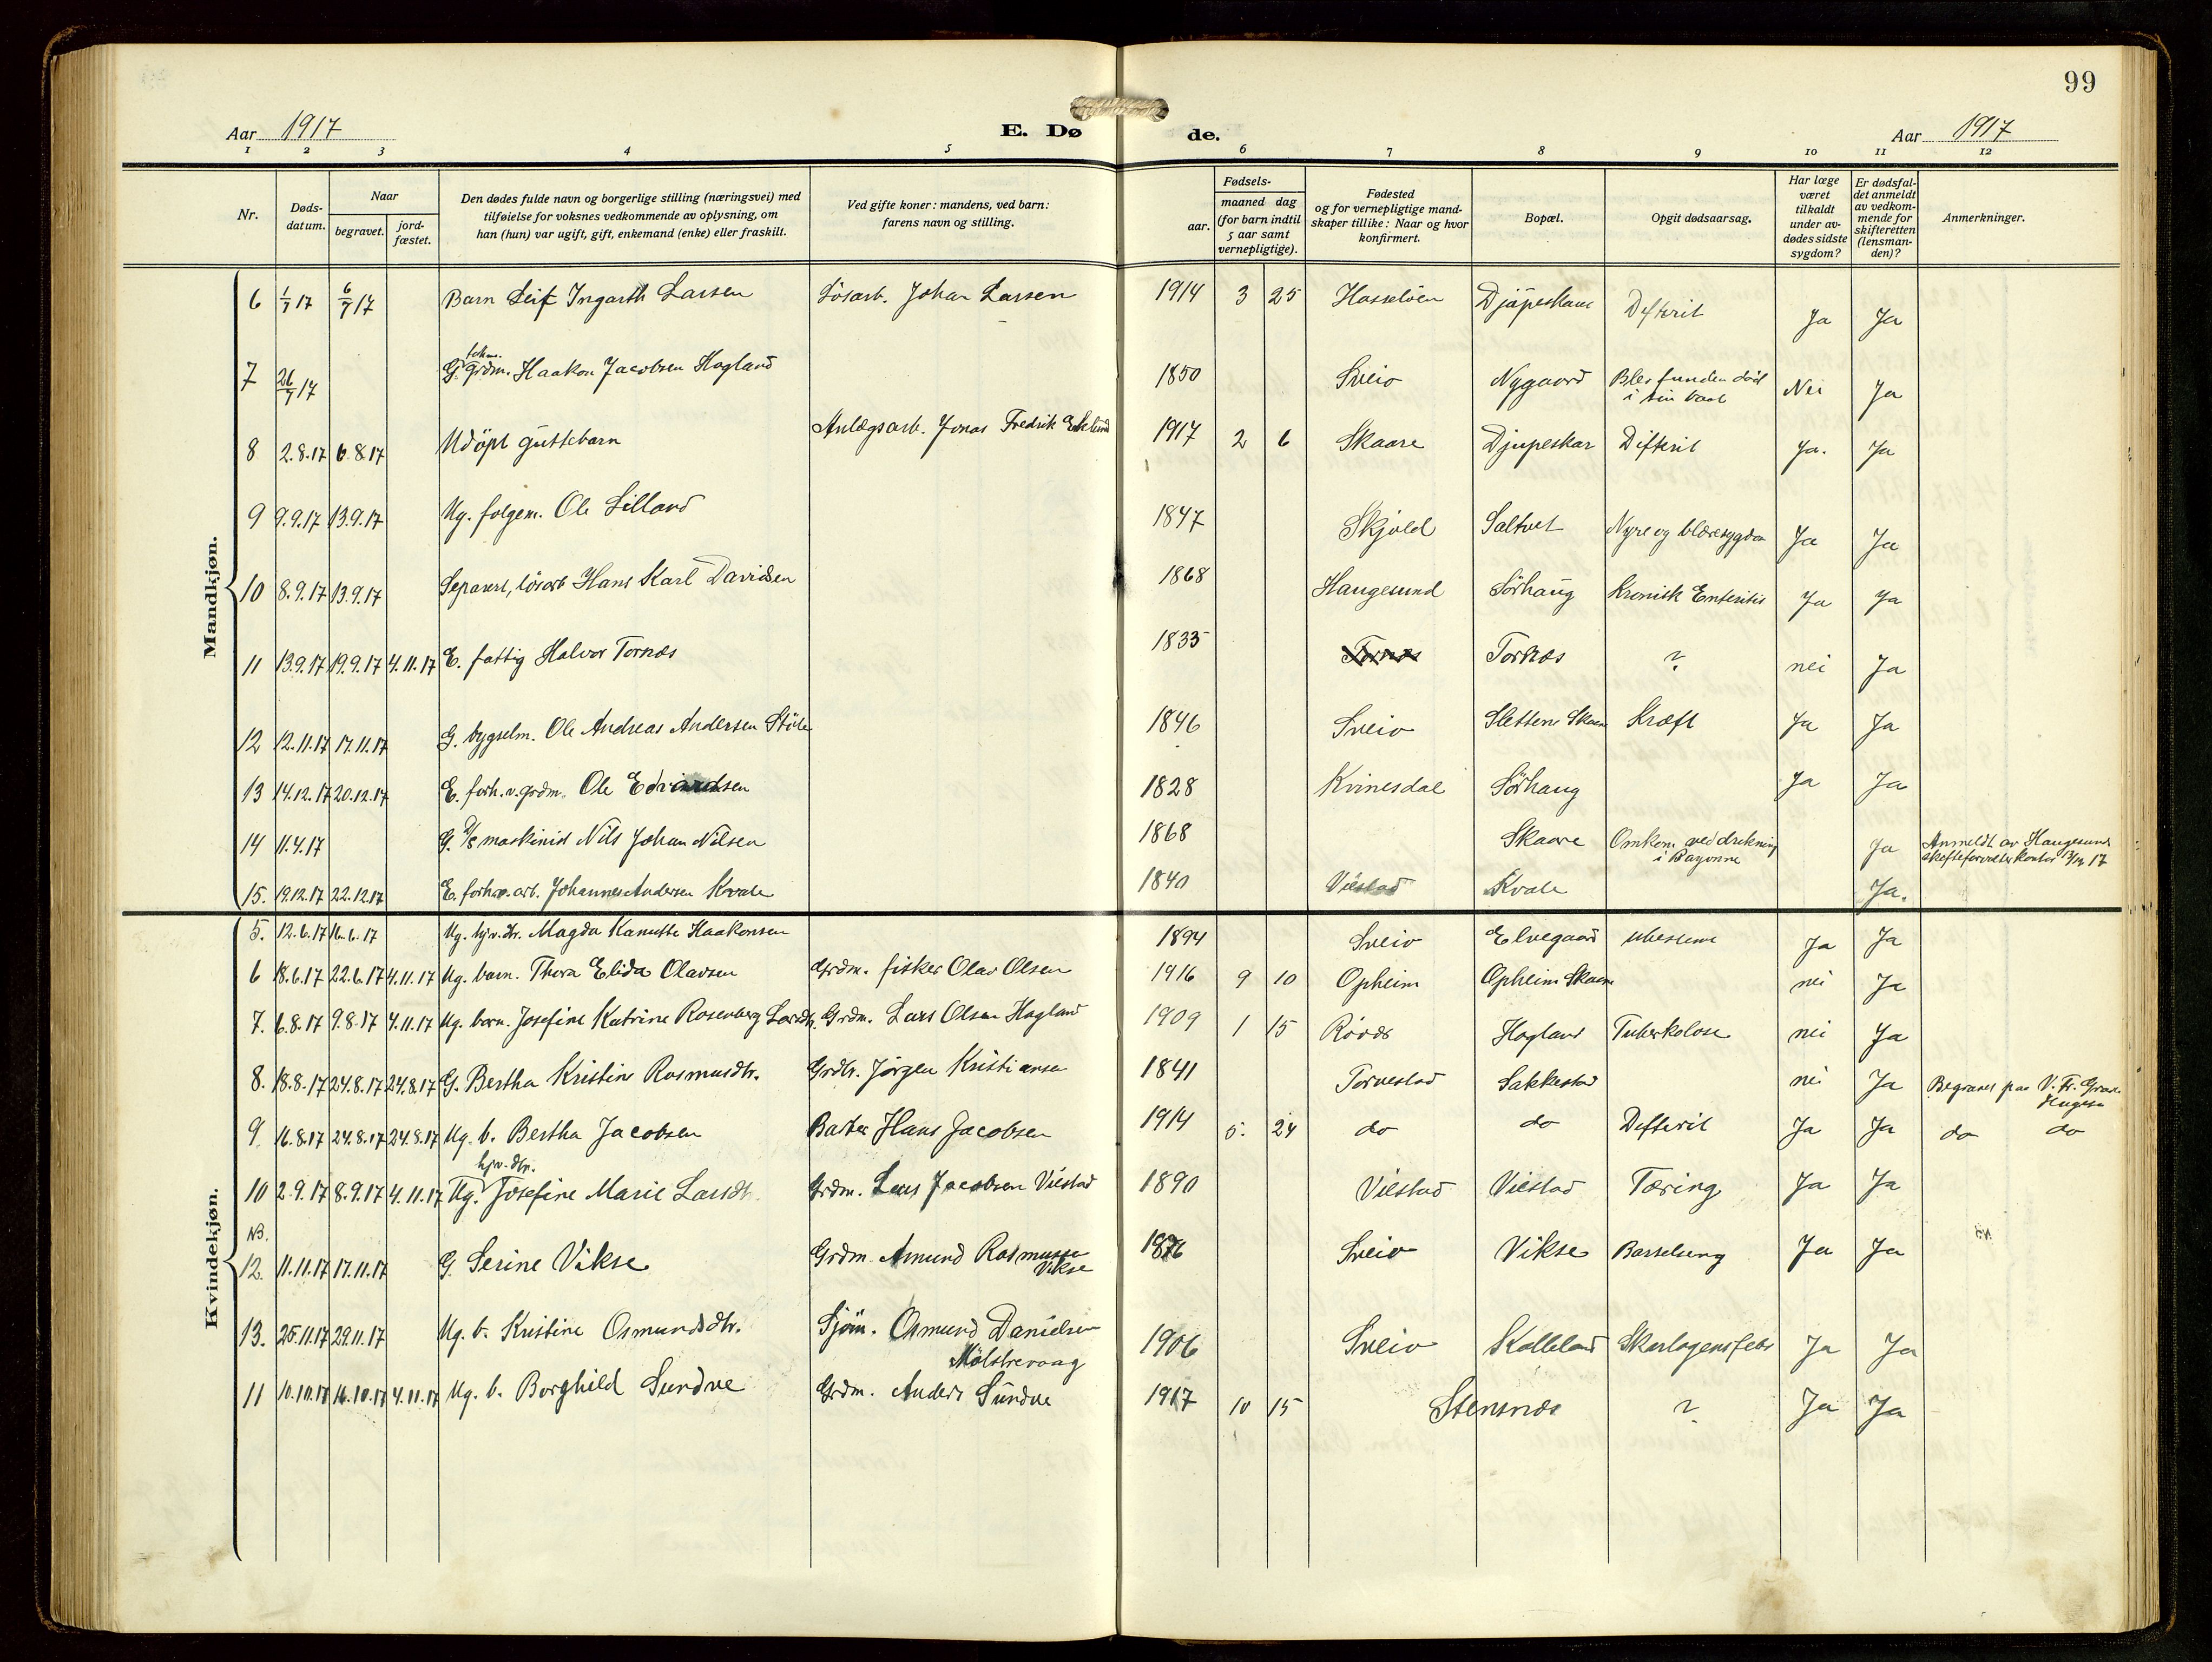 99
Aar 1917
E. Dø
de.
Aar 1917
1 2 3 4 5 6 7 8 9 10 11 12
Nr.
Døds-
datum.
Naar
begravet.
jord-
fæstet.
Den dødes fulde navn og borgerlige stilling (næringsvei) med
tilføielse for voksnes vedkommende av oplysning, om
han (hun) var ugift, gift, enkemand (enke) eller fraskilt.
Ved gifte koner: mandens, ved barn:
farens navn og stilling.
Fødsels-
aar.
maaned dag
(for barn indtil
5 aar samt
vernepligtige).
Fødested
og for vernepligtige mand-
skaper tillike: Naar og hvor
konfirmert.
Bopæl.
Opgit dødsaarsag.
Har læge
været
tilkaldt
under av-
dødes sidste
sygdom?
Er dødsfal-
det anmeldt
av vedkom-
mende for
skifteretten
(lensman-
den)?
Anmerkninger.
Mandkjøn.
6 1/7 17 6/7 17 Barn Leif Ingarth Larsen Lösarb. Johan Larsen 1914 3 25 Hasseløen Djüpeskaar Difterit Ja Ja
7 26/7 17 G. grdm. Haakon Jacobsen Hogland 1850 Sveio Nygaard Blev funden död
i sin baat Nei Ja
8 2.8.17 6.8.17 Udöpt guttebarn Anlægsarb. Jonas Fredrik Eklund 1917 2 6 Skaare Djupeskar Difterit Ja. Ja
9 9.9.17 13.9.17 Ug. folgem. Ole Lilland 1847 Skjold Saltvet Nyre og blæresygdom Ja Ja
10 8.9.17 13.9.17 Separert, lösarb Hans Karl Davidsen 1868 Haugesund Sörhaug Kronisk Enteritis Ja Ja
11 13.9.17 19.9.17 4.11.17 E. fattig Halvor Tornæs 1835 Tornæs Tornæs ? nei Ja
12 12.11.17 17.11.17 G. bygselm. Ole Andreas Andersen Stöle 1846 Sveio Slettene Skaare Kræft Ja Ja
13 14.12.17 20.12.17 E. forh.v. grdm. Ole Edvardsen 1828 Kvinesdal Sörhaug Ja Ja
14 11.4.17 G. maskinist Nils Johan Nilsen 1868 Skaare Omkom ved drukning
i Bayonne Ja Anmeldt av Haugesund
17
15. 19.12.17 22.12.17 E. forhv. arb. Johannes Andersen Kvale 1840 Vilstad Kvale Ja.
Kvindekjøn.
5. 12.6.17 16.6.17 Ug. hjv. dtr. Magda Kanutte Haakonsen 1894 Sveio Elvegaard ubestemt Ja Ja
6 18.6.17 22.6.17 4.11.17 Ug. barn. Thora Elida Olavsen Grdm. fisker Olav Olsen 1916 9 10 Opheim Opheim Skaare nei Ja
7. 6.8.17 9.8.17 4.11.17 Ug. barn. Josefine Katrine Rosenberg Larsdtr. Grdm. Lars Olsen Hogland 1909 1 15 Röværs Hogland Tuberkolose nei Ja
8. 18.8.17 24.8.17 24.8.17 G. Bertha Kristine Rasmusdtr. Grdbr. Jörgen Kristiansen 1841 Torvestad Sakkestad nei Ja Begravet paa V. Fr. Grav.
9. 16.8.17 24.8.17 24.8.17 Ug. b. Bertha Jacobsen Hans Jacobsen 1914 5. 24 do do Difterit Ja Ja do do
hjv. dtr.
10 2.9.17 8.9.17 4.11.17 Ug. Josefine Marie Larsdtr. Grdm. Lars Jacobsen Vilstad 1890 Vilstad Vilstad Tæring Ja Ja
NB.
12. 11.11.17 17.11.17 G Serine Vikse Grdm. Amund Rasmussen
Vikse 1876 Sveio Vikse Barselseng Ja Ja
13. 25.11.17 29.11.17 Ug. b. Kristine Osmundsdtr. Sjöm. Osmund Danielsen
Mölstrevaag 1906 Sveio Kalleland Skarlagensfeber Ja Ja
11 10.10.17 16.10.17 4.11.17 Ug. b. Borghild Sundve Grdm. Anders Sundve 1917 10 15 Stensnæs ? Ja Ja